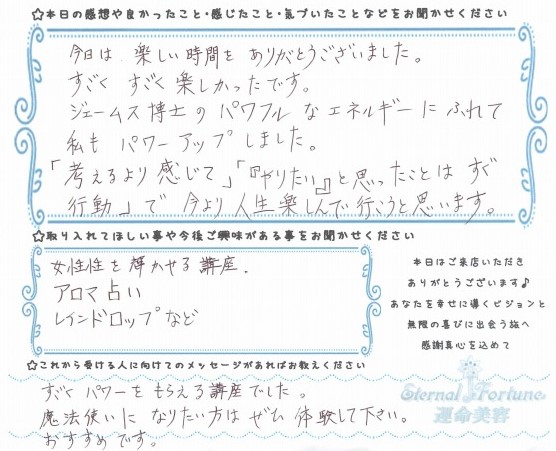 ☆本日の感想や良かったこと・感じたこと・気づいたことなどをお聞かせください
今日は 楽しい時間を ありがとうございました。
すごく すごく 楽しかったです。
ジェームス博士の パワフル な エネルギー に ふれて
私も パワーアップ しました。
「考えるより 感じて」「『やりたい』と思ったことは すぐ
行動」で 今より 人生 楽しんで 行こうと 思います。
☆取り入れてほしい事や今後ご興味がある事をお聞かせください
女性性を 輝かせる 講座.
アロマ占い
レインドロップなど
本日はご来店いただき
ありがとうございます♪
あなたを幸せに導くビジョンと
無限の喜びに出会う旅へ
感謝真心を込めて
☆これから受ける人に向けてのメッセージがあればお教えください
すごく パワーを もらえる 講座でした。
魔法使いに なりたい方は ぜひ 体験して下さい。
おすすめです。
Eternal Fortune
運命美容